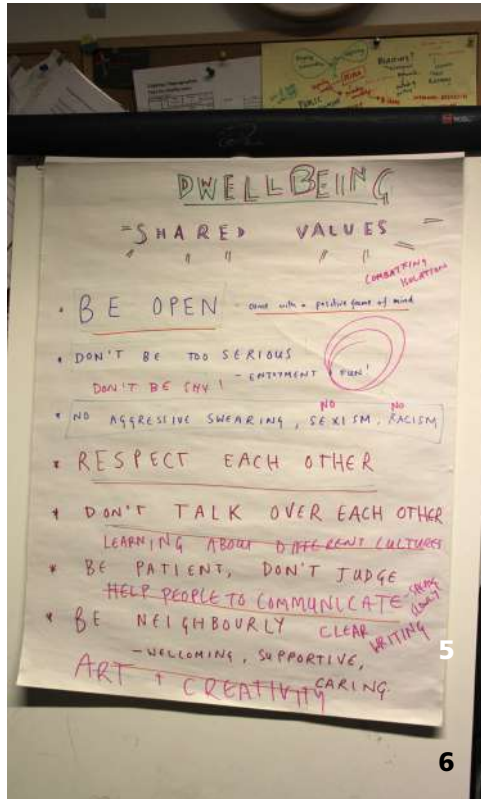 DWELLBEIING
SHARED VALUES
COMBATTING
ISOLATION
BE OPEN - come with a positive frame of mind
DON'T BE TOO SERIOUS
- ENJOYMENT + FUN!
DON'T BE SHY!
NO NO
* NO AGGRESSIVE SWEARING, SEXISM, RACISM
* RESPECT EACH OTHER
* DON'T TALK OVER EACH OTHER
LEARNING ABOUT DIFFERENT CULTURES
* BE PATIENT, DON'T JUDGE
HELP PEOPLE TO COMMUNICATE - SPEAK
CLEARLY
* BE NEIGHBOURLY CLEAR WRITING
- WELCOMING, SUPPORTIVE,
CARING.
ART + CREATIVITY
5
6